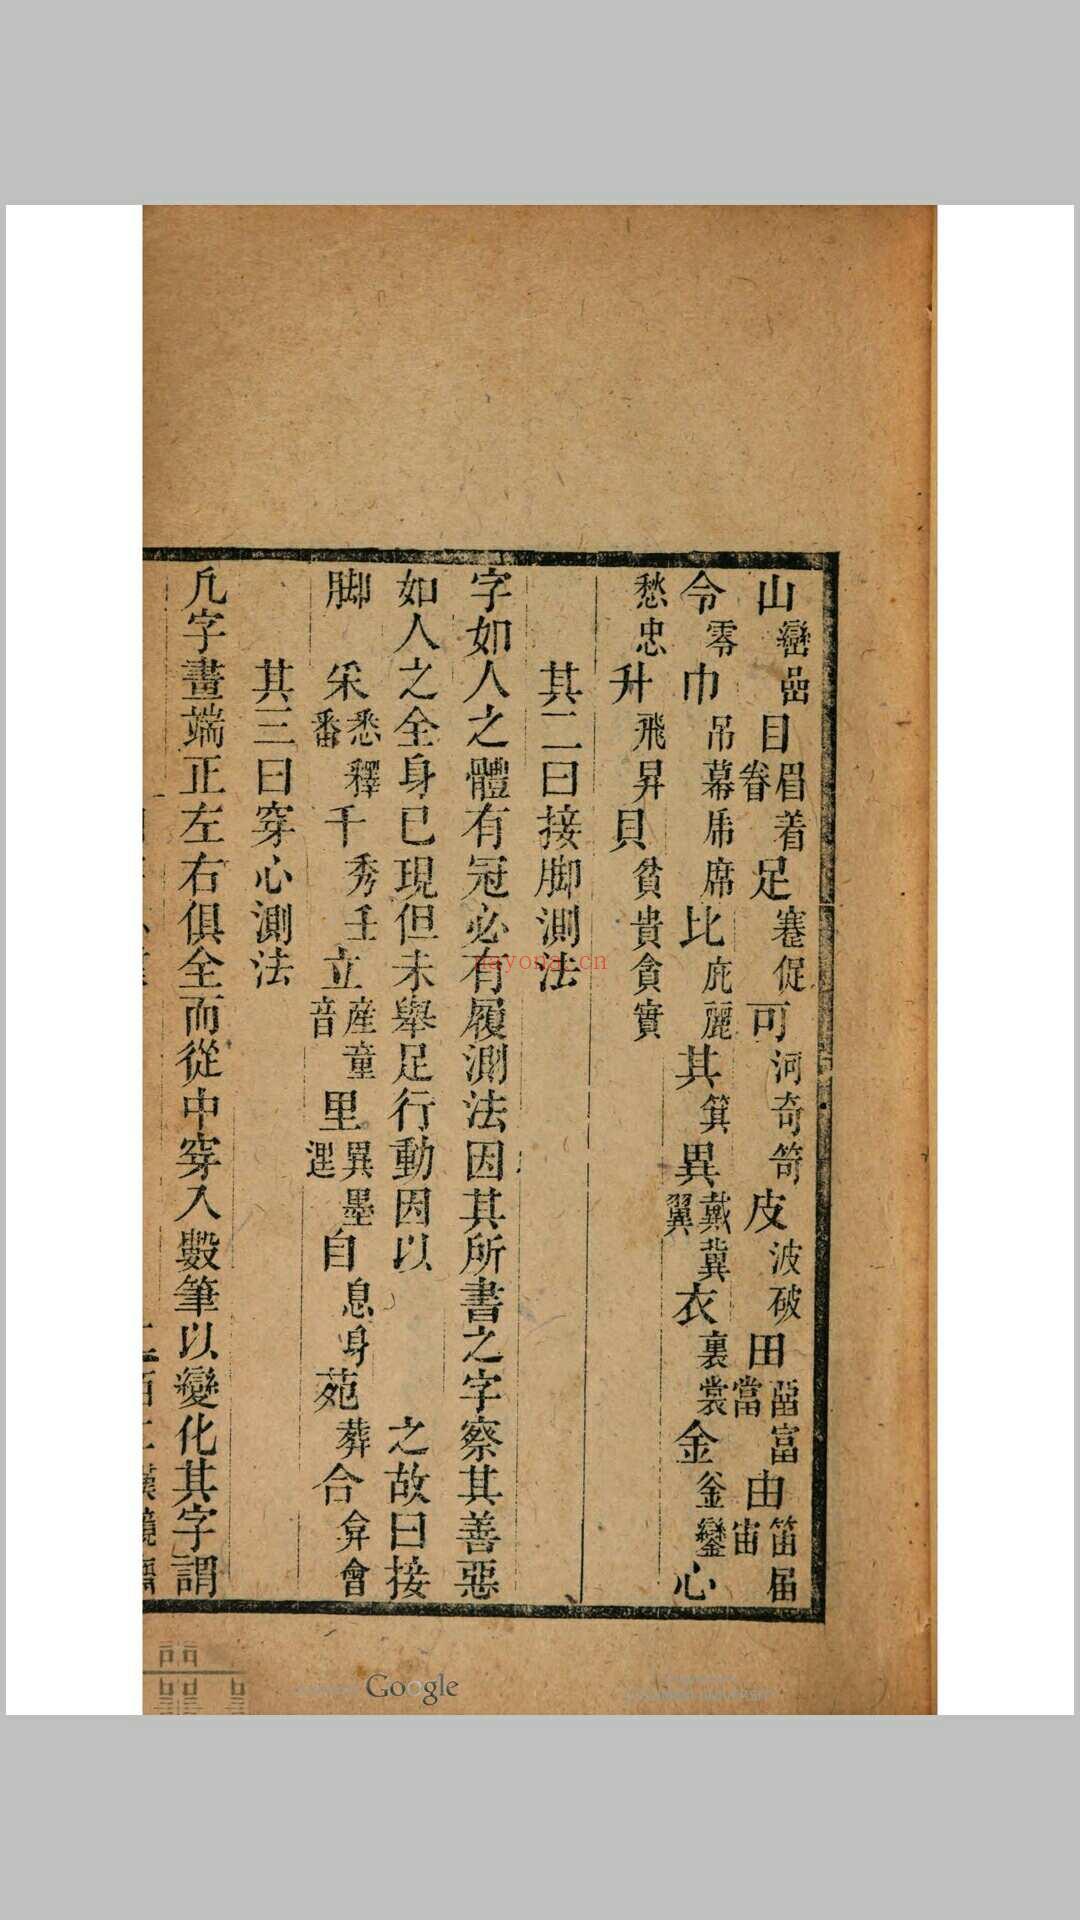 山巒嵒目眉着眷足蹇促可河奇笴皮波破田畱富當由笛届宙
令零巾吊幕帍席比庇麗其箕異戴冀翼衣裏裳金釜鑾心
愁忠升飛昇貝貧貴貪實
其二曰接脚測法
字如人之體有冠必有履測法因其所書之字察其善惡
如人之全身已現但未舉足行動因以之故曰接
脚釆悉釋番千秀壬立産童音里異墨逕自息身苑葬合弇會
其三曰穿心測法
凡字畫端正左右俱全而從中穿入數筆以變化其字謂
Google